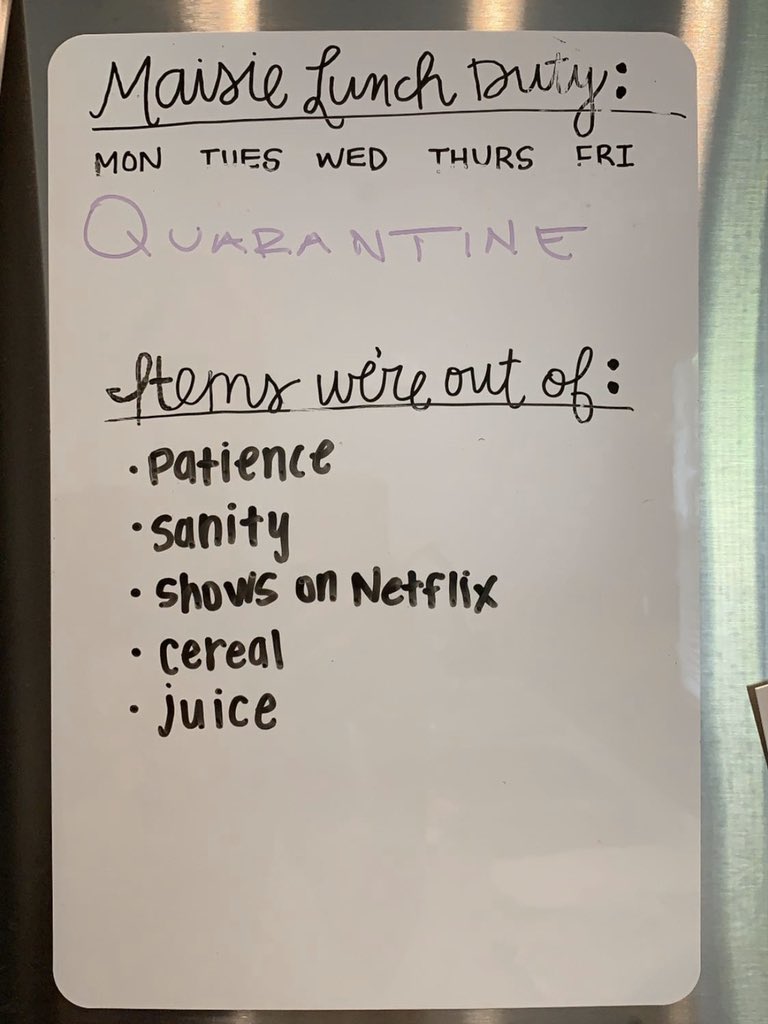 Maisie Lunch Duty:
MON TUES WED THURS FRI
QUARANTINE
Items we're out of:
· Patience
· sanity
· shows on Netflix
· cereal
· juice